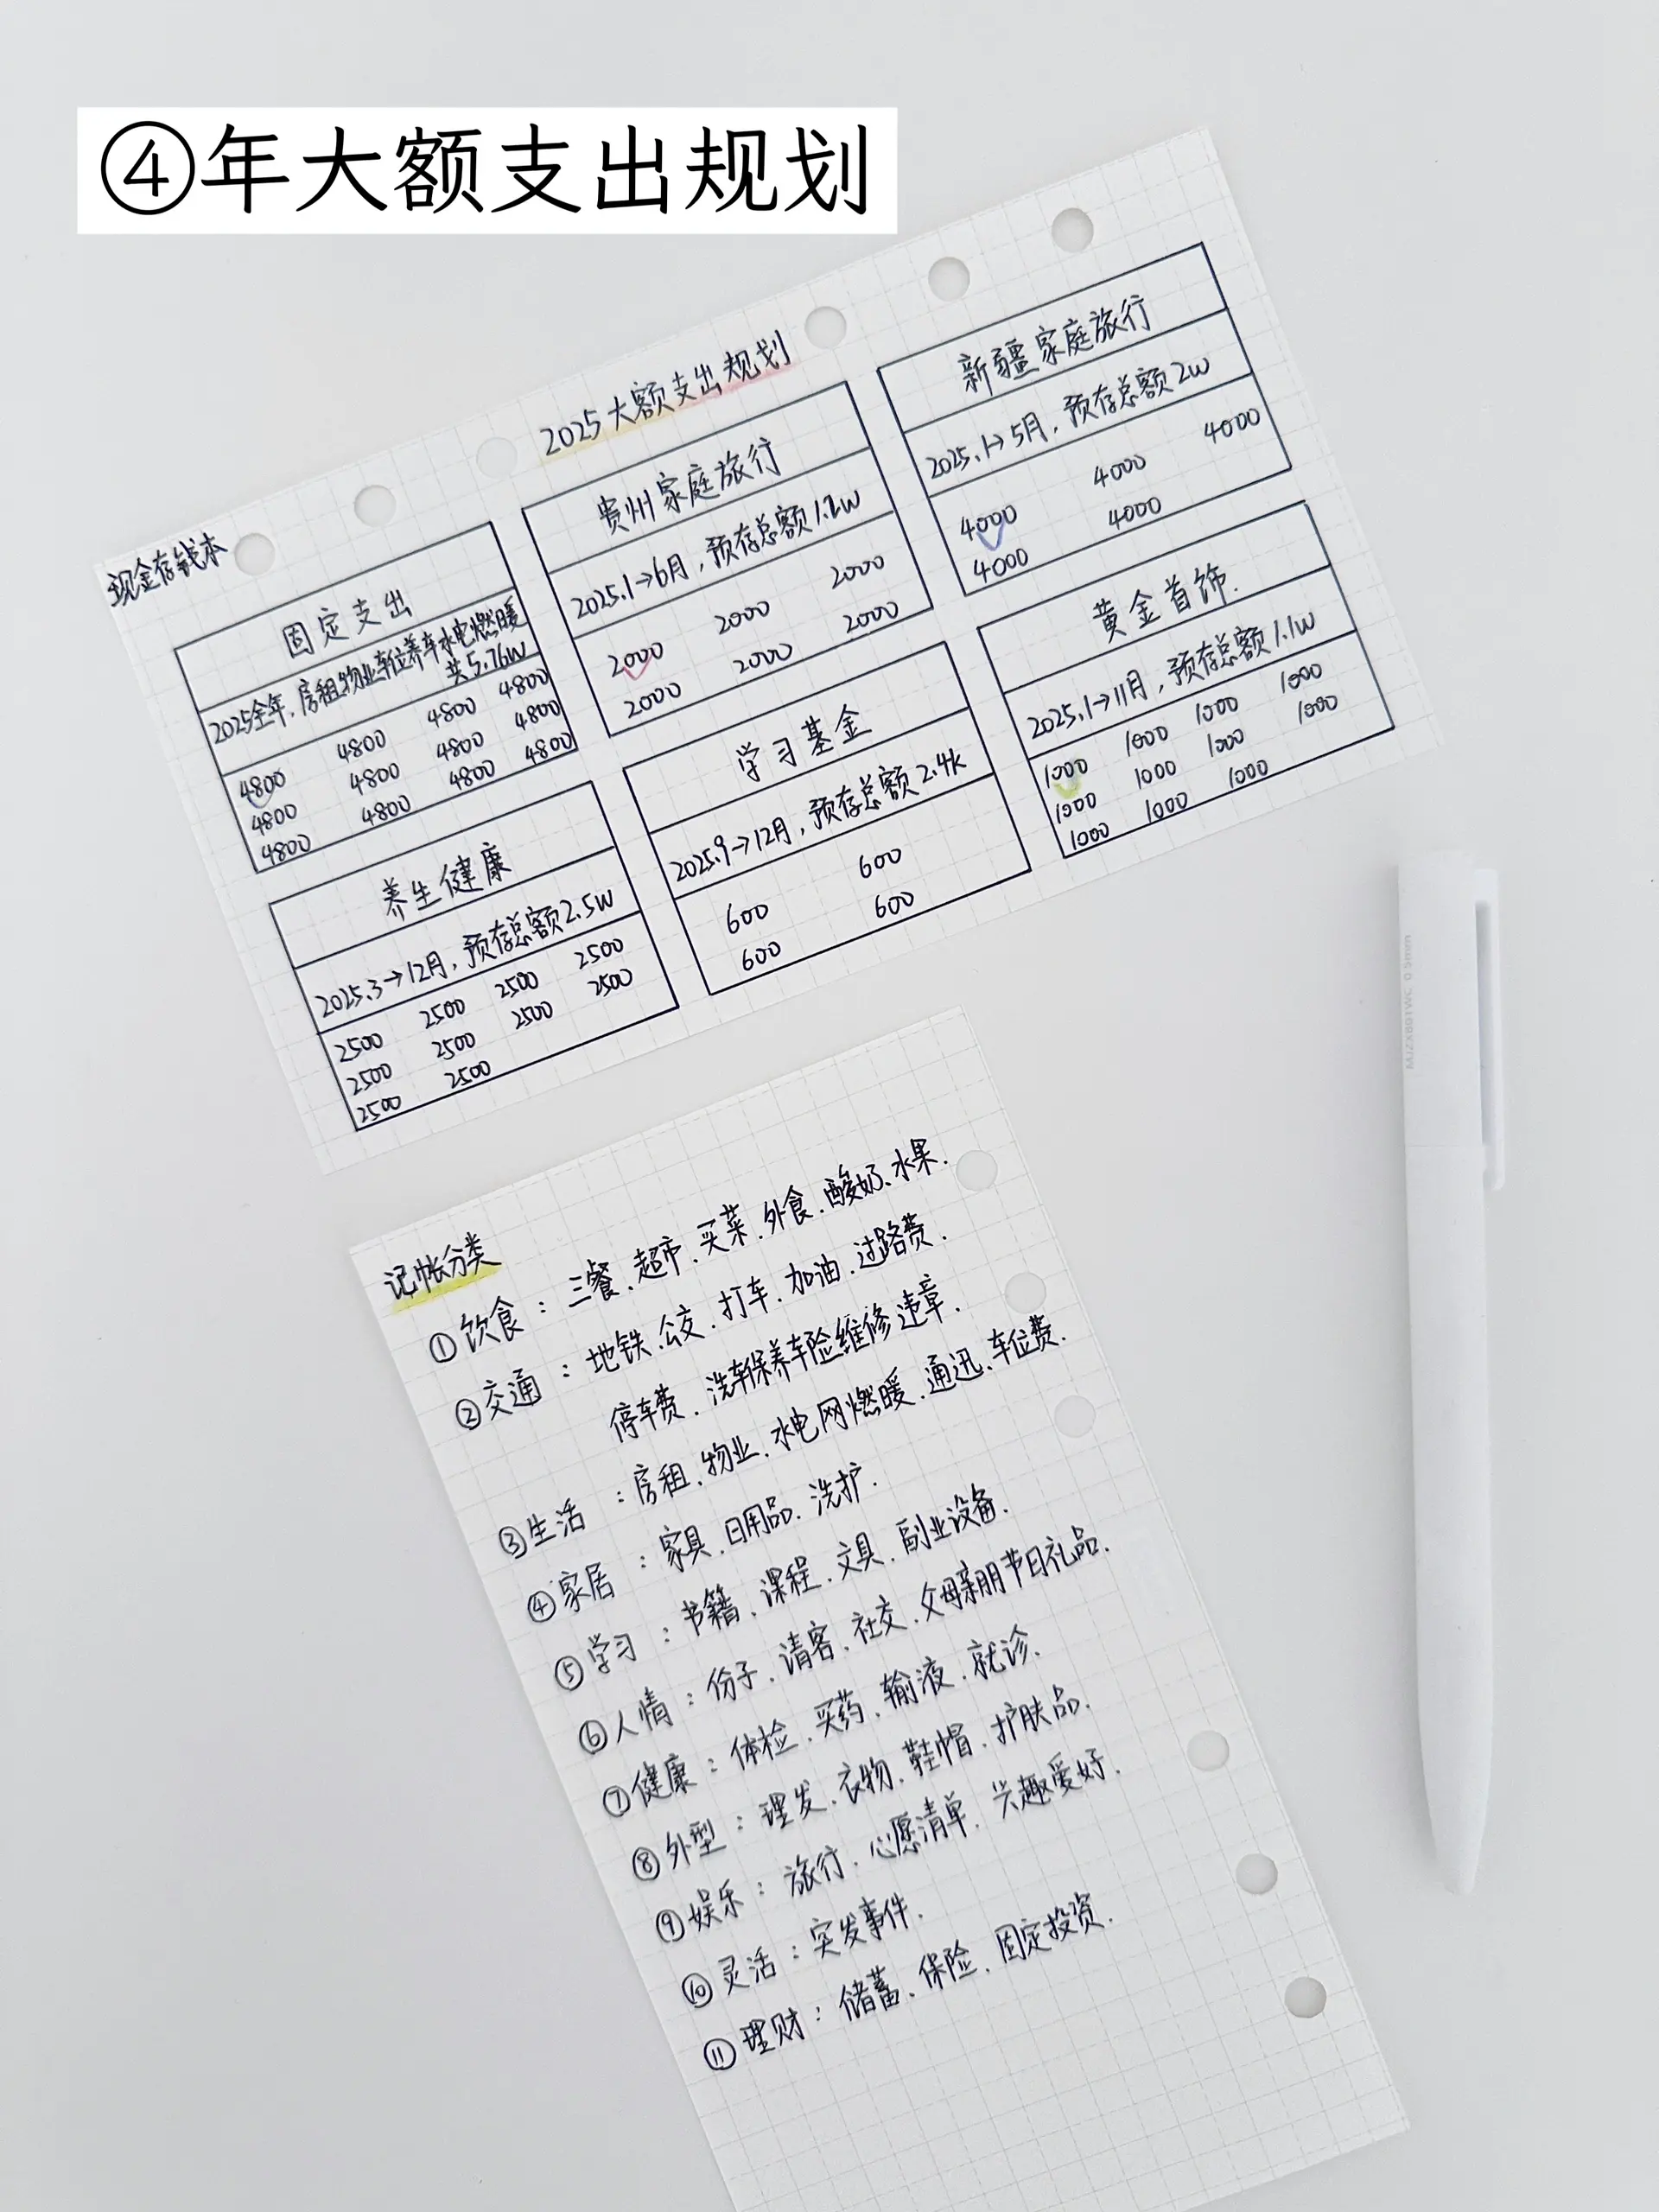 ④年大额支出规划
现金存钱本
2025大额支出规划
固定支出
2025全年,房租物业车位养车水电燃暖
共5.76w
4800 4800 4800 4800
4800 4800 4800 4800
4800 4800 4800 4800
贵州家庭旅行
2025.1→6月,预存总额1.2w
2000 2000 2000
2000 2000 2000
新疆家庭旅行
2025.1→5月,预存总额2w
4000 4000 4000
4000 4000
养生健康
2025.3→12月,预存总额2.5w
2500 2500 2500 2500
2500 2500 2500 2500
2500 2500
学习基金
2025.9→12月,预存总额2.4k
600 600
600 600
黄金首饰.
2025.1→11月,预存总额1.1w
1000 1000 1000 1000
1000 1000 1000 1000
1000 1000 1000
记帐分类
①饮食:三餐、超市、买菜、外食、酸奶、水果.
②交通:地铁、公交、打车、加油、过路费.
停车费、洗车保养车险维修违章.
③生活:房租、物业、水电网燃暖、通迅、车位费.
④家居:家具、日用品、洗护.
⑤学习:书籍、课程、文具、副业设备.
⑥人情:份子、请客、社交、父母亲朋节日礼品.
⑦健康:体检、买药、输液、就诊.
⑧外型:理发、衣物、鞋帽、护肤品.
⑨娱乐:旅行、心愿清单、兴趣爱好.
⑩灵活:突发事件.
⑪理财:储蓄、保险、固定投资.
MJZXBB1WC 0.5mm